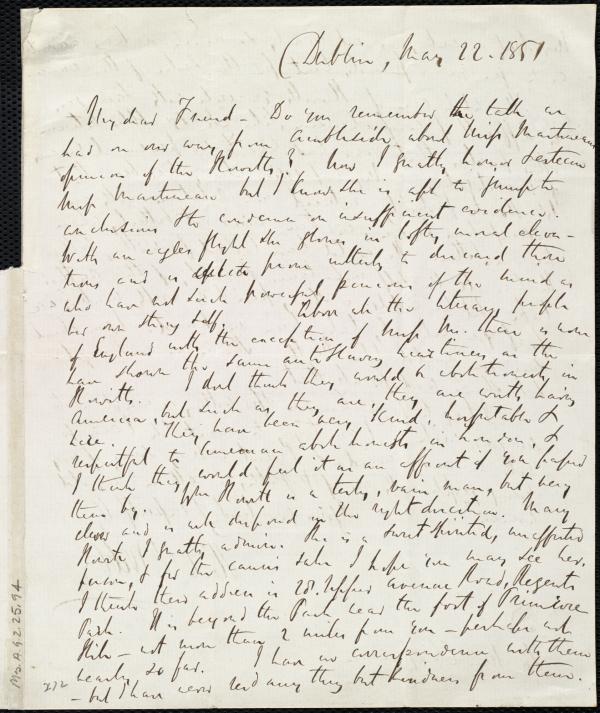 Dublin, May 22 - 1851
My dear Friend - Do you remember the talk we
had on our way from Ambleside about Miss Martineau's
opinion of the Howitts? how I greatly honor & esteem
Miss Martineau but I know she is apt to jump to
conclusions & to condemn on insufficient evidence.
With an eagles flight she glories in lofty moral eleva-
tions and is prone utterly to discard those
who have not such powerful pinions of the mind as
her own strong self. Above all the literary people
of England with the exception of Miss M. there is none
have shown the same antislavery heartiness as the
Howitts. I dont think they would be abolitionists in
America, but such as they are they are worth having
here. They have been very kind, hospitable &
respectful to American abolitionists in London, &
I think they would feel it as an affront if you passed
them by. Wm Howitt is a testy, vain man, but very
clever and is well disposed in the right direction. Mary
Howitt I greatly admire. She is a sweet spirited, unaffected
person, & for the cause's sake I hope you may see her.
I think their address is 28 Upper Avenue Road, Regents
Park. It is beyond the Park near the foot of Primrose
Hill - not more than 2 miles from you - perhaps not
nearly so far. I have no correspondence with them
- but I have never recd any thing but kindness from them.
Ms.A.9.2.25.94